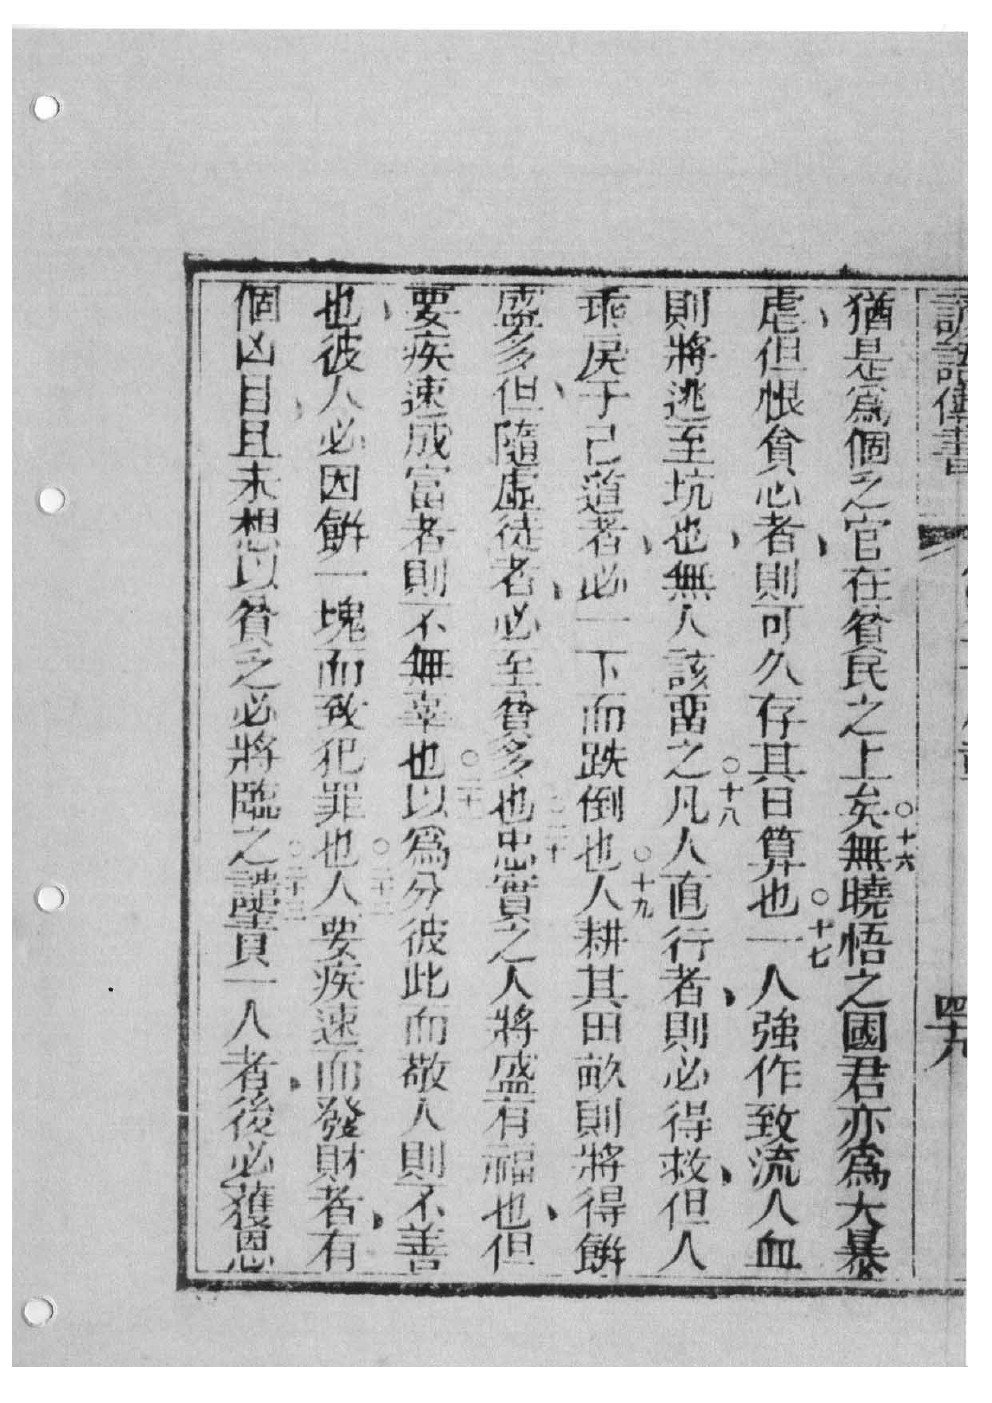 諺語傳書 四十九
猶是爲個之官在貧民之上矣○十六無曉悟之國君亦爲大暴
虐但恨貪心者則可久存其日算也○十七一人強作致流人血
則將逃至坑也無人該畱之○十八凡人直行者則必得救但人
乖戾于己道者必一下而跌倒也○十九人耕其田畝則將得餅
盛多但隨虛徒者必至貧多也○二十忠實之人將盛有福也但
要疾速成富者則不無辜也○二十一以爲分彼此而敬人則不善
也彼人必因餅一塊而致犯罪也○二十二人要疾速而發財者有
個凶目且未想以貧乏必將臨之○二十三譴責一人者後必獲恩